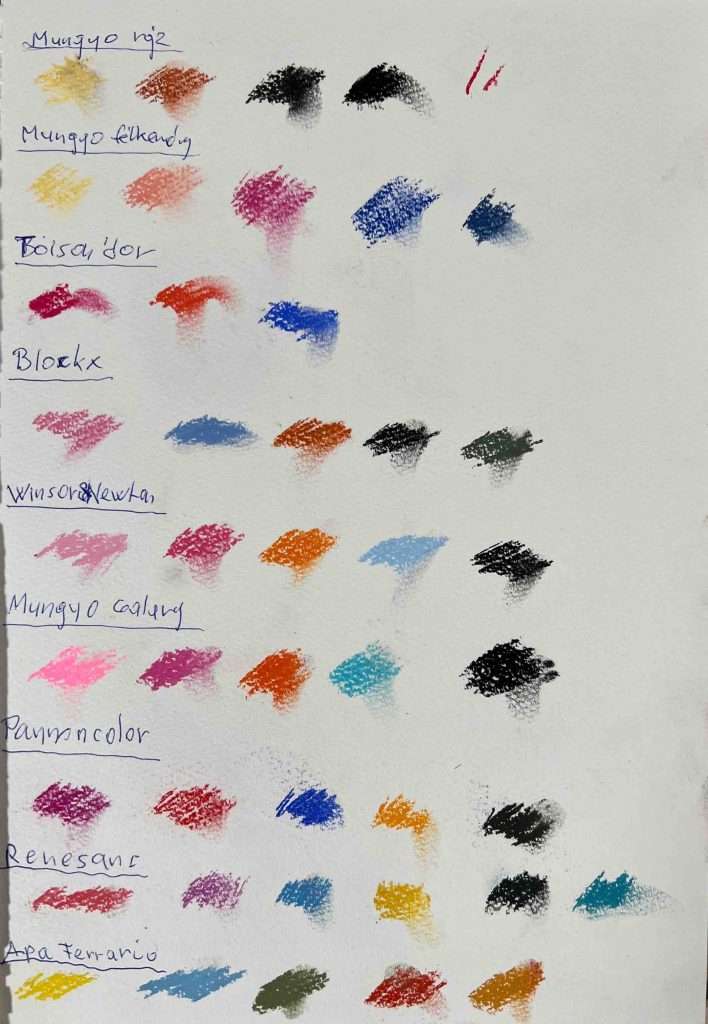 Mungyo
Mungyo félkemény
Toison d'or
Blockx
Winsor&Newton
Mungyo Gallery
Pannoncolor
Renesans
Apa Ferrario